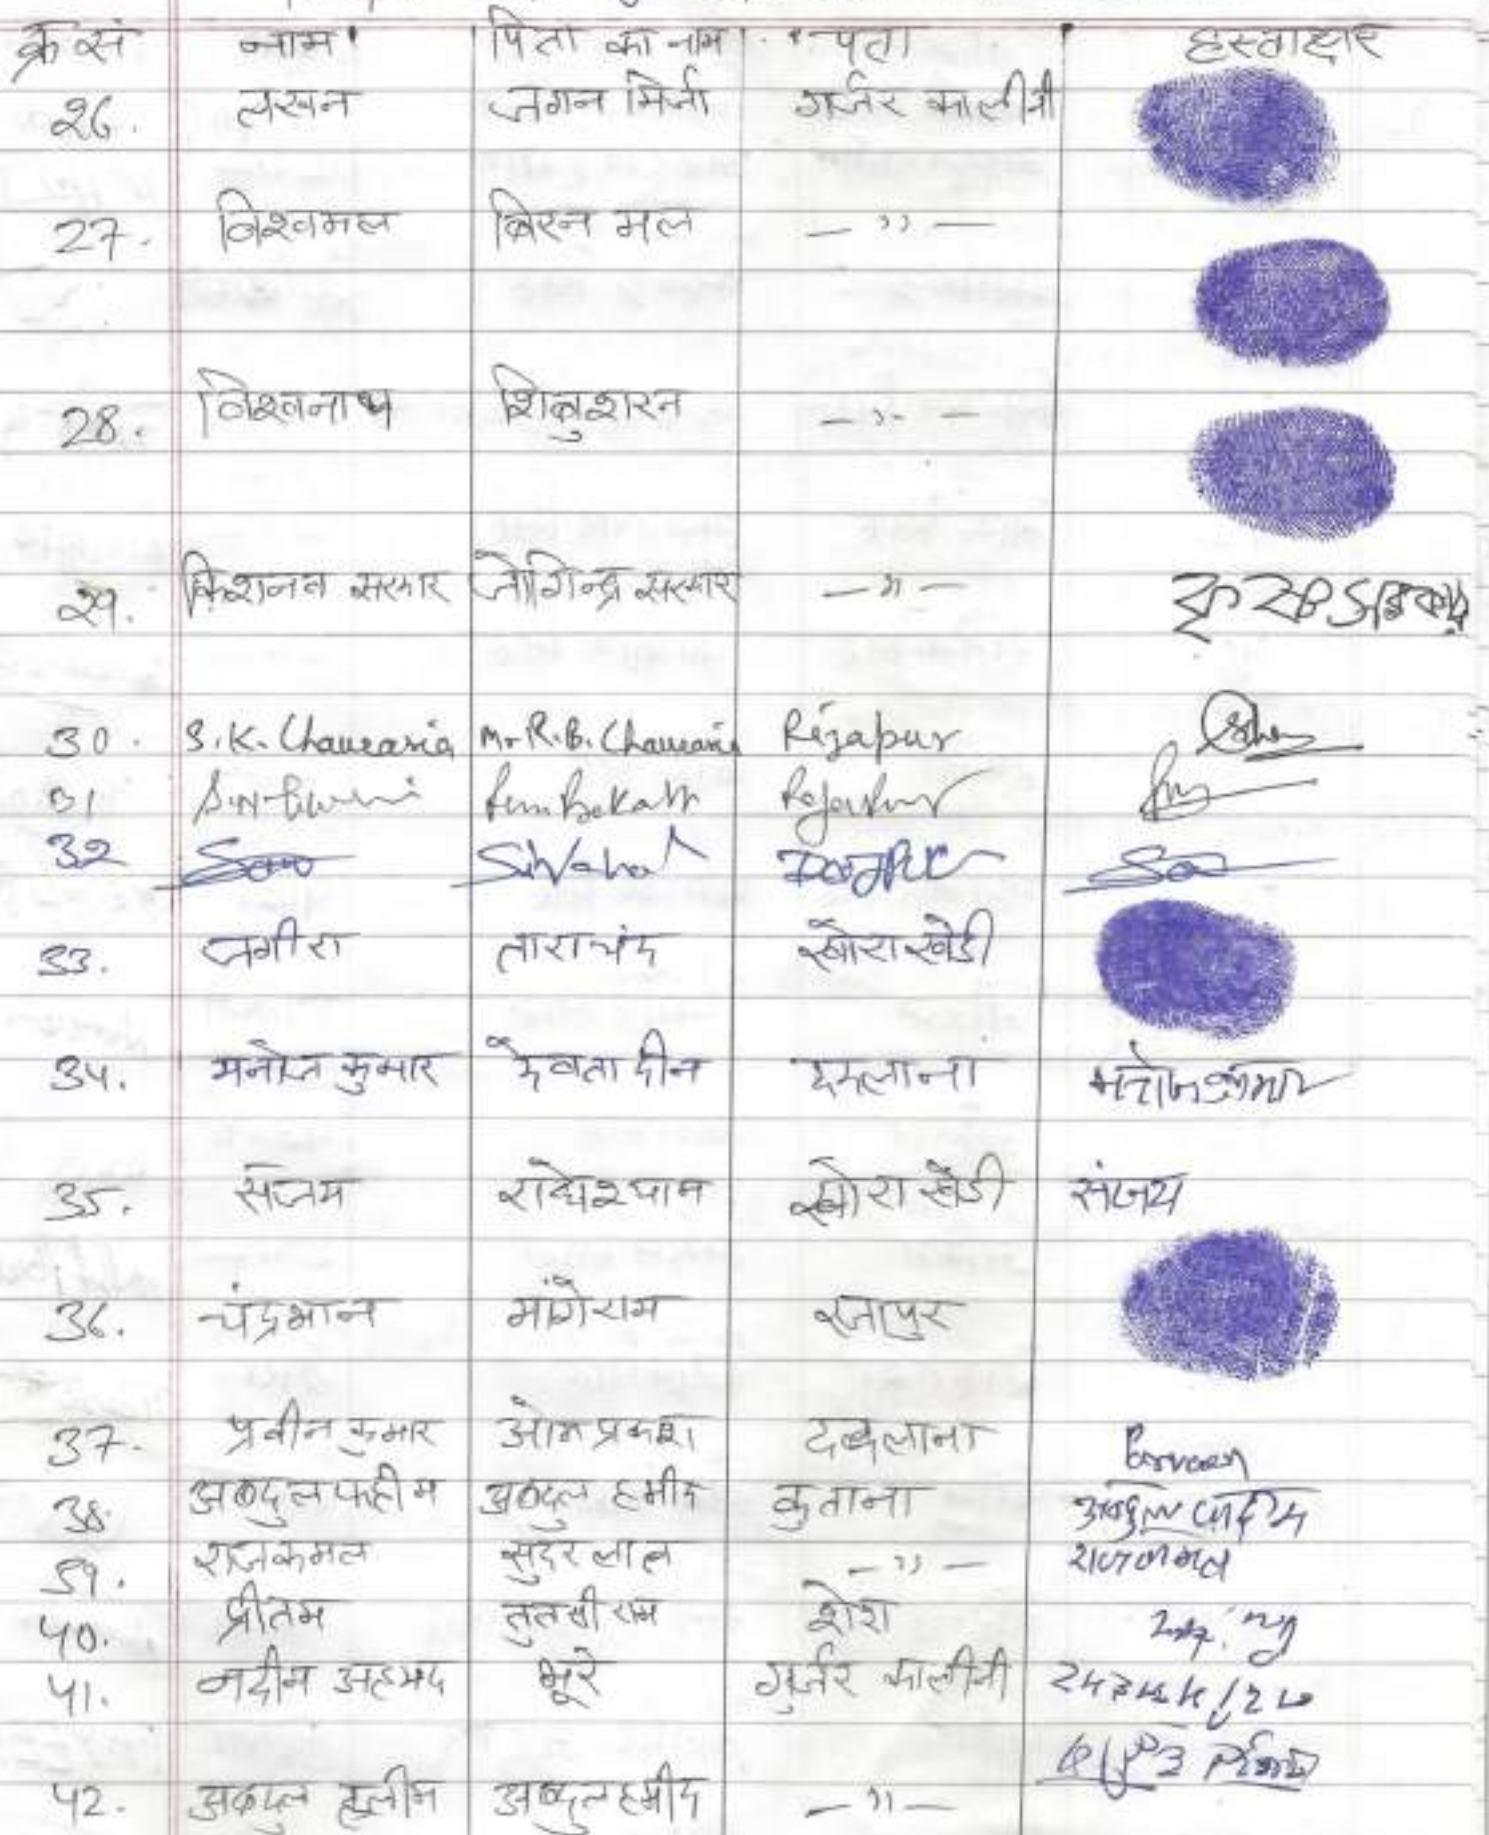 क्र सं नाम पिता का नाम पता हस्ताक्षर
26. लखन जगन मिर्जा गुर्जर कालोनी
27. विश्वमल बिरन मल —"—
28. विश्वनाथ शिबुशरन —"—
29. किशनन सरकार जोगिन्द्र सरकार —"—
30. S.K. Chaurasia Mr R.B. Chaurasia Rijapur
31
32
33. जगीरा ताराचंद खोराखेडी
34. मनोज कुमार देवता दीन मनोज कुमार
35. संजय राधेश्याम खोरा खेडी संजय
36. चंद्रभान मांगेराम रजापुर
37. प्रवीन कुमार ओम प्रकाश ददलाना Parveen
38. अब्दुल फहीम अब्दुल हमीद कुताना अब्दुल फहीम
39. राजकमल सुंदर लाल —"— राजकमल
40. प्रीतम तुलसी राम शेरा
41. नदीम अहमद भूरे गुर्जर कालोनी
42. अब्दुल हलीम अब्दुल हमीद —"—